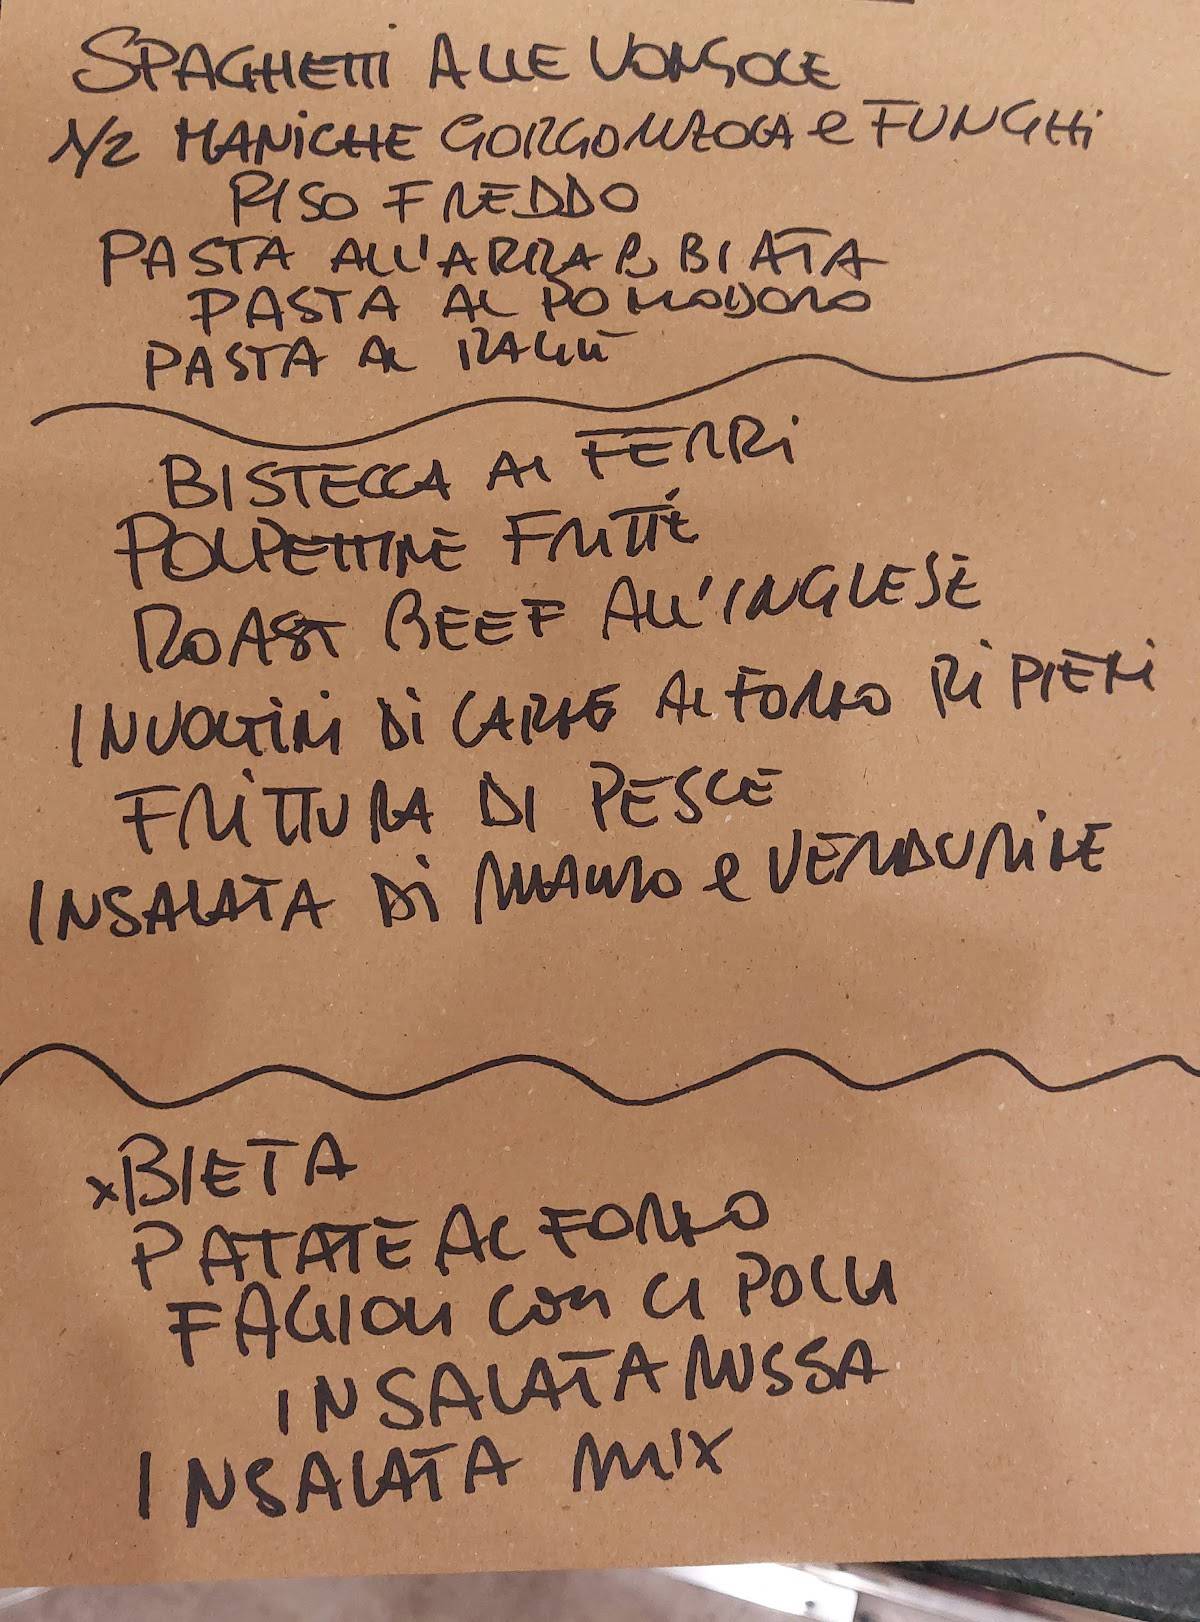 SPAGHETTI ALLE VONGOLE
1/2 MANICHE GORGONZOLA e FUNGHi
RISO FREDDO
PASTA ALL'ARRABBIATA
PASTA AL POMODORO
PASTA AL RAGÙ
BISTECCA AI FERRi
POLPETTINE FRITTE
ROAST BEEF ALL'INGLESE
INVOLTiNi Di CARNE AL FORNO RiPIENi
FRiTTURA DI PESCE
INSALATA Di e VERDURiNE
xBIETA
PATATE AL FORNO
FAGIOLI con CIPOLLI
INSALATA RUSSA
INSALATA MIX